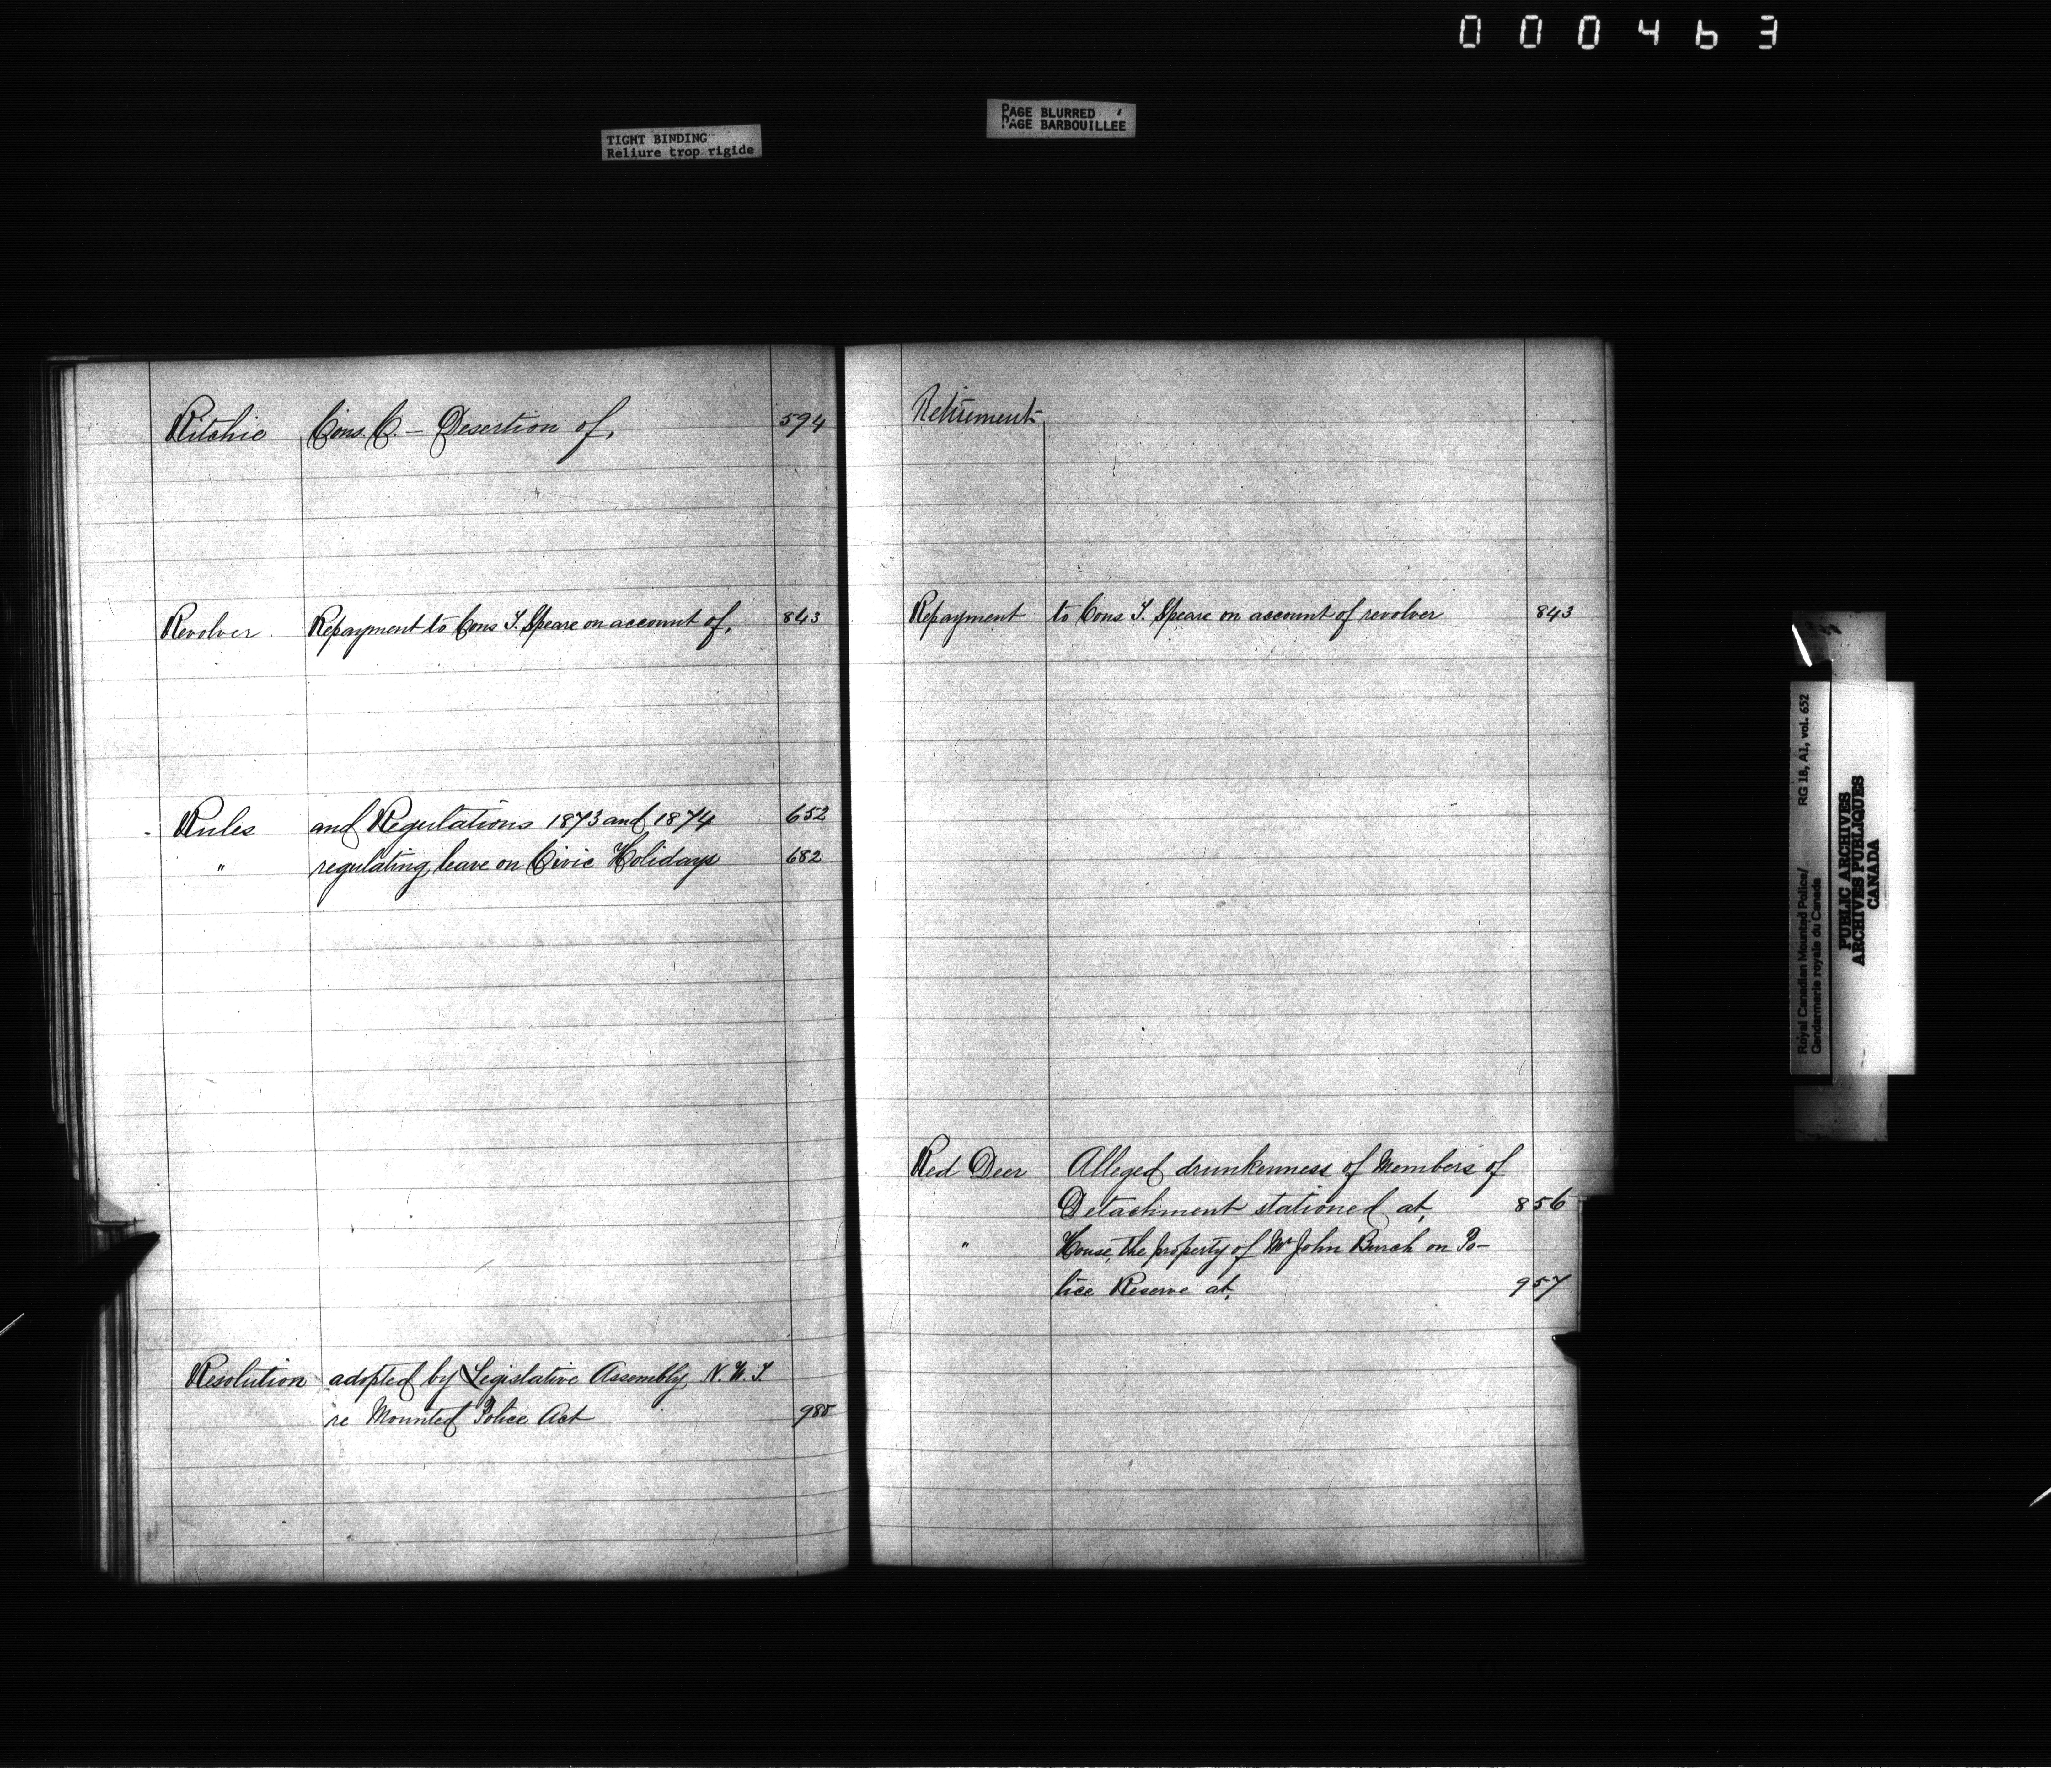 000463
PAGE BLURRED
PAGE BARBOUILLEE
TIGHT BINDING
Reliure trop rigide
Ritchie Cons. C. — Desertion of, 594
Revolver Repayment to Cons T. Speare on account of, 843
Rules and Regulations 1873 and 1874 652
" regulating leave on Civic Holidays 682
Resolution adopted by Legislative Assembly N.W.T.
re Mounted Police Act
Retirement
Repayment to Cons T. Speare on account of revolver 843
Red Deer Alleged drunkenness of Members of
Detachment stationed at, 856
" House, the property of Mr John Burch on Po-
lice Reserve at, 957
Royal Canadian Mounted Police/ RG 18, A1, vol. 652
Gendarmerie royale du Canada
PUBLIC ARCHIVES
ARCHIVES PUBLIQUES
CANADA